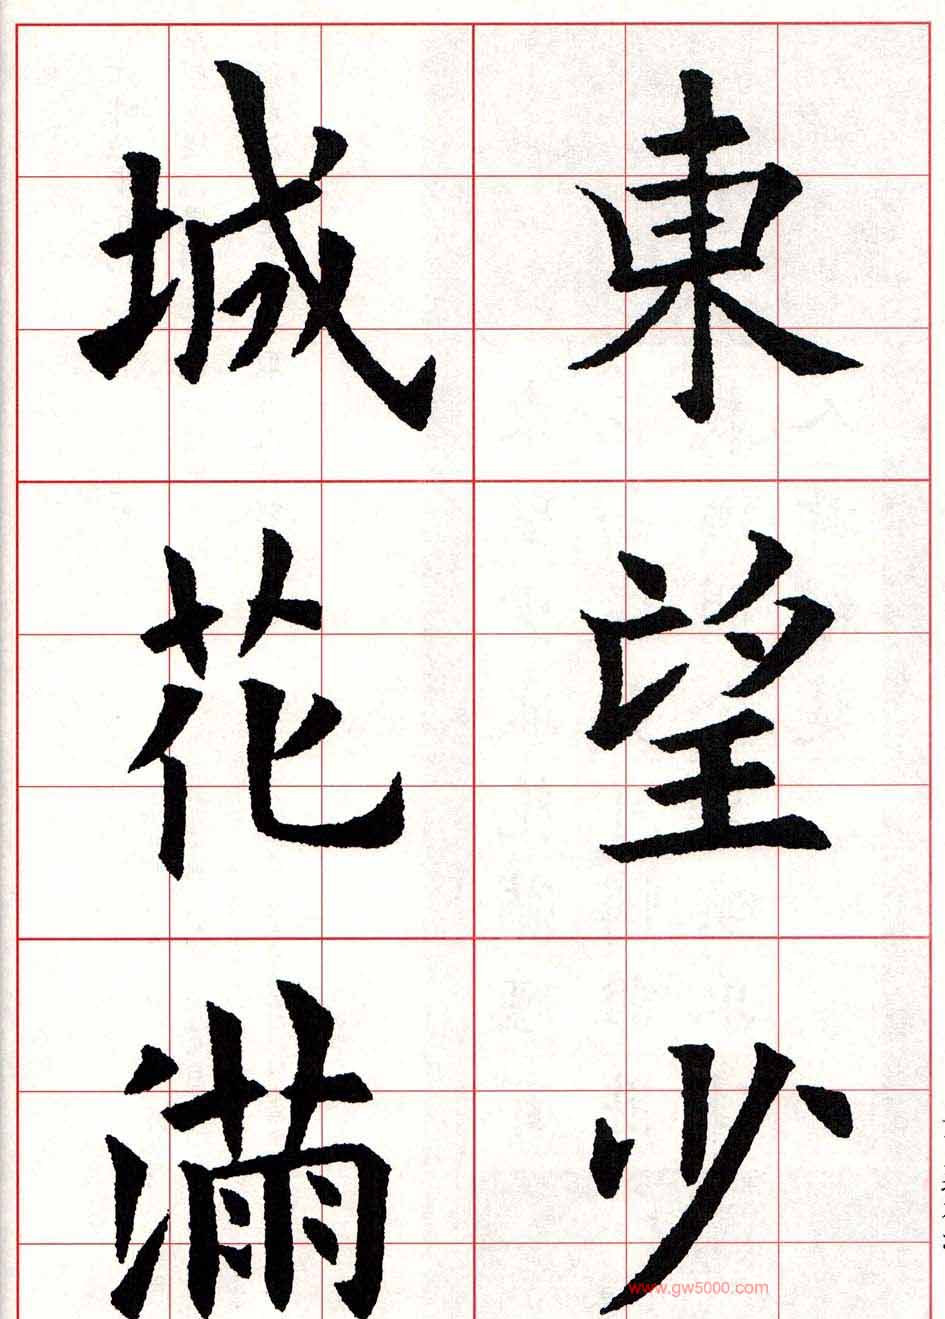 東望少
城花滿
www.gw5000.com